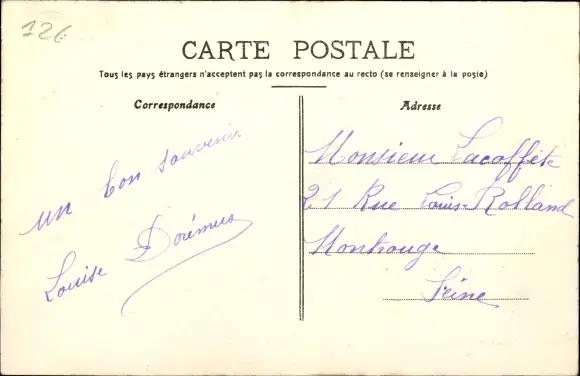 126
CARTE POSTALE
Tous les pays étrangers n'acceptent pas la correspondance au recto (se renseigner à la poste)
Correspondance
un bon souvenir
Louise Dorémus
Adresse
Monsieur Lacoffète
21 Rue Louis-Rolland
Montrouge
Seine